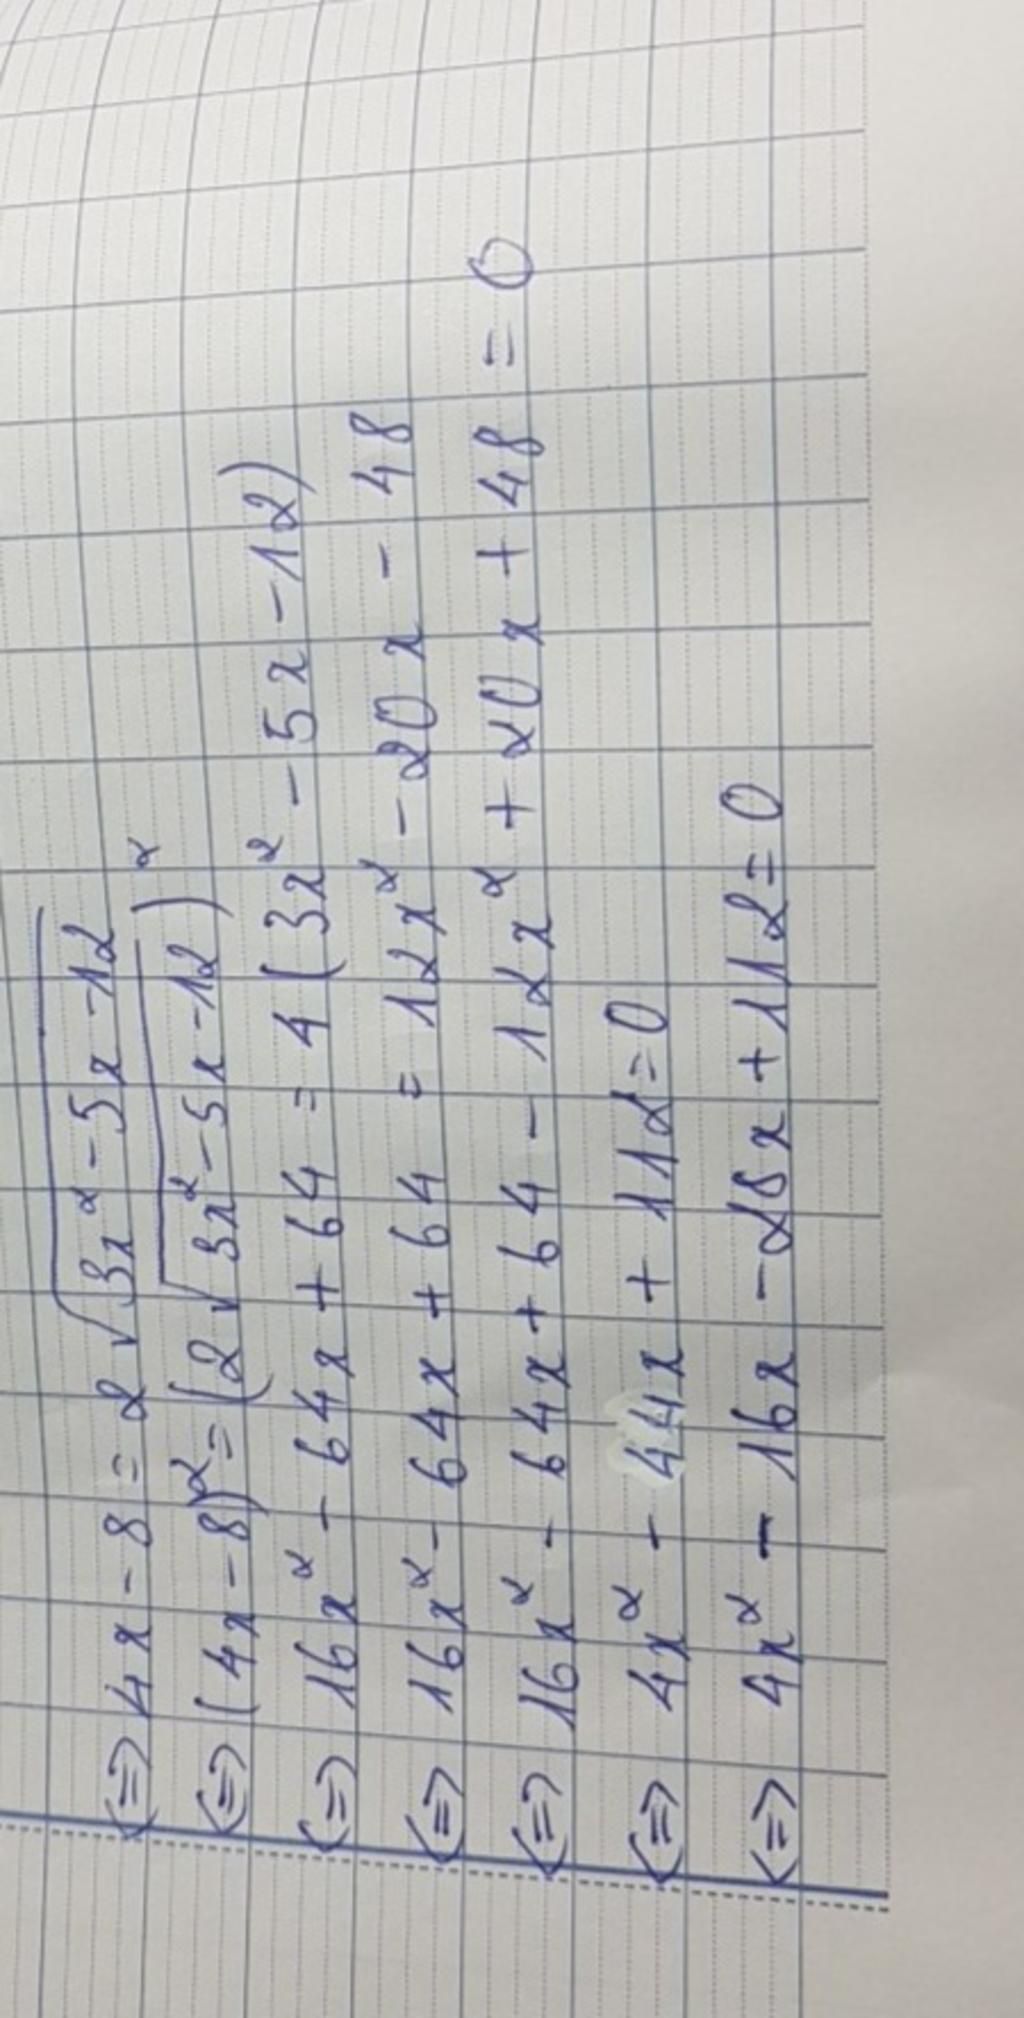 <=> 4x - 8 = 2√(3x² - 5x - 12)
<=> (4x - 8)² = (2√(3x² - 5x - 12))²
<=> 16x² - 64x + 64 = 4(3x² - 5x - 12)
<=> 16x² - 64x + 64 = 12x² - 20x - 48
<=> 16x² - 64x + 64 - 12x² + 20x + 48 = 0
<=> 4x² - 44x + 112 = 0
<=> 4x² - 16x - 28x + 112 = 0